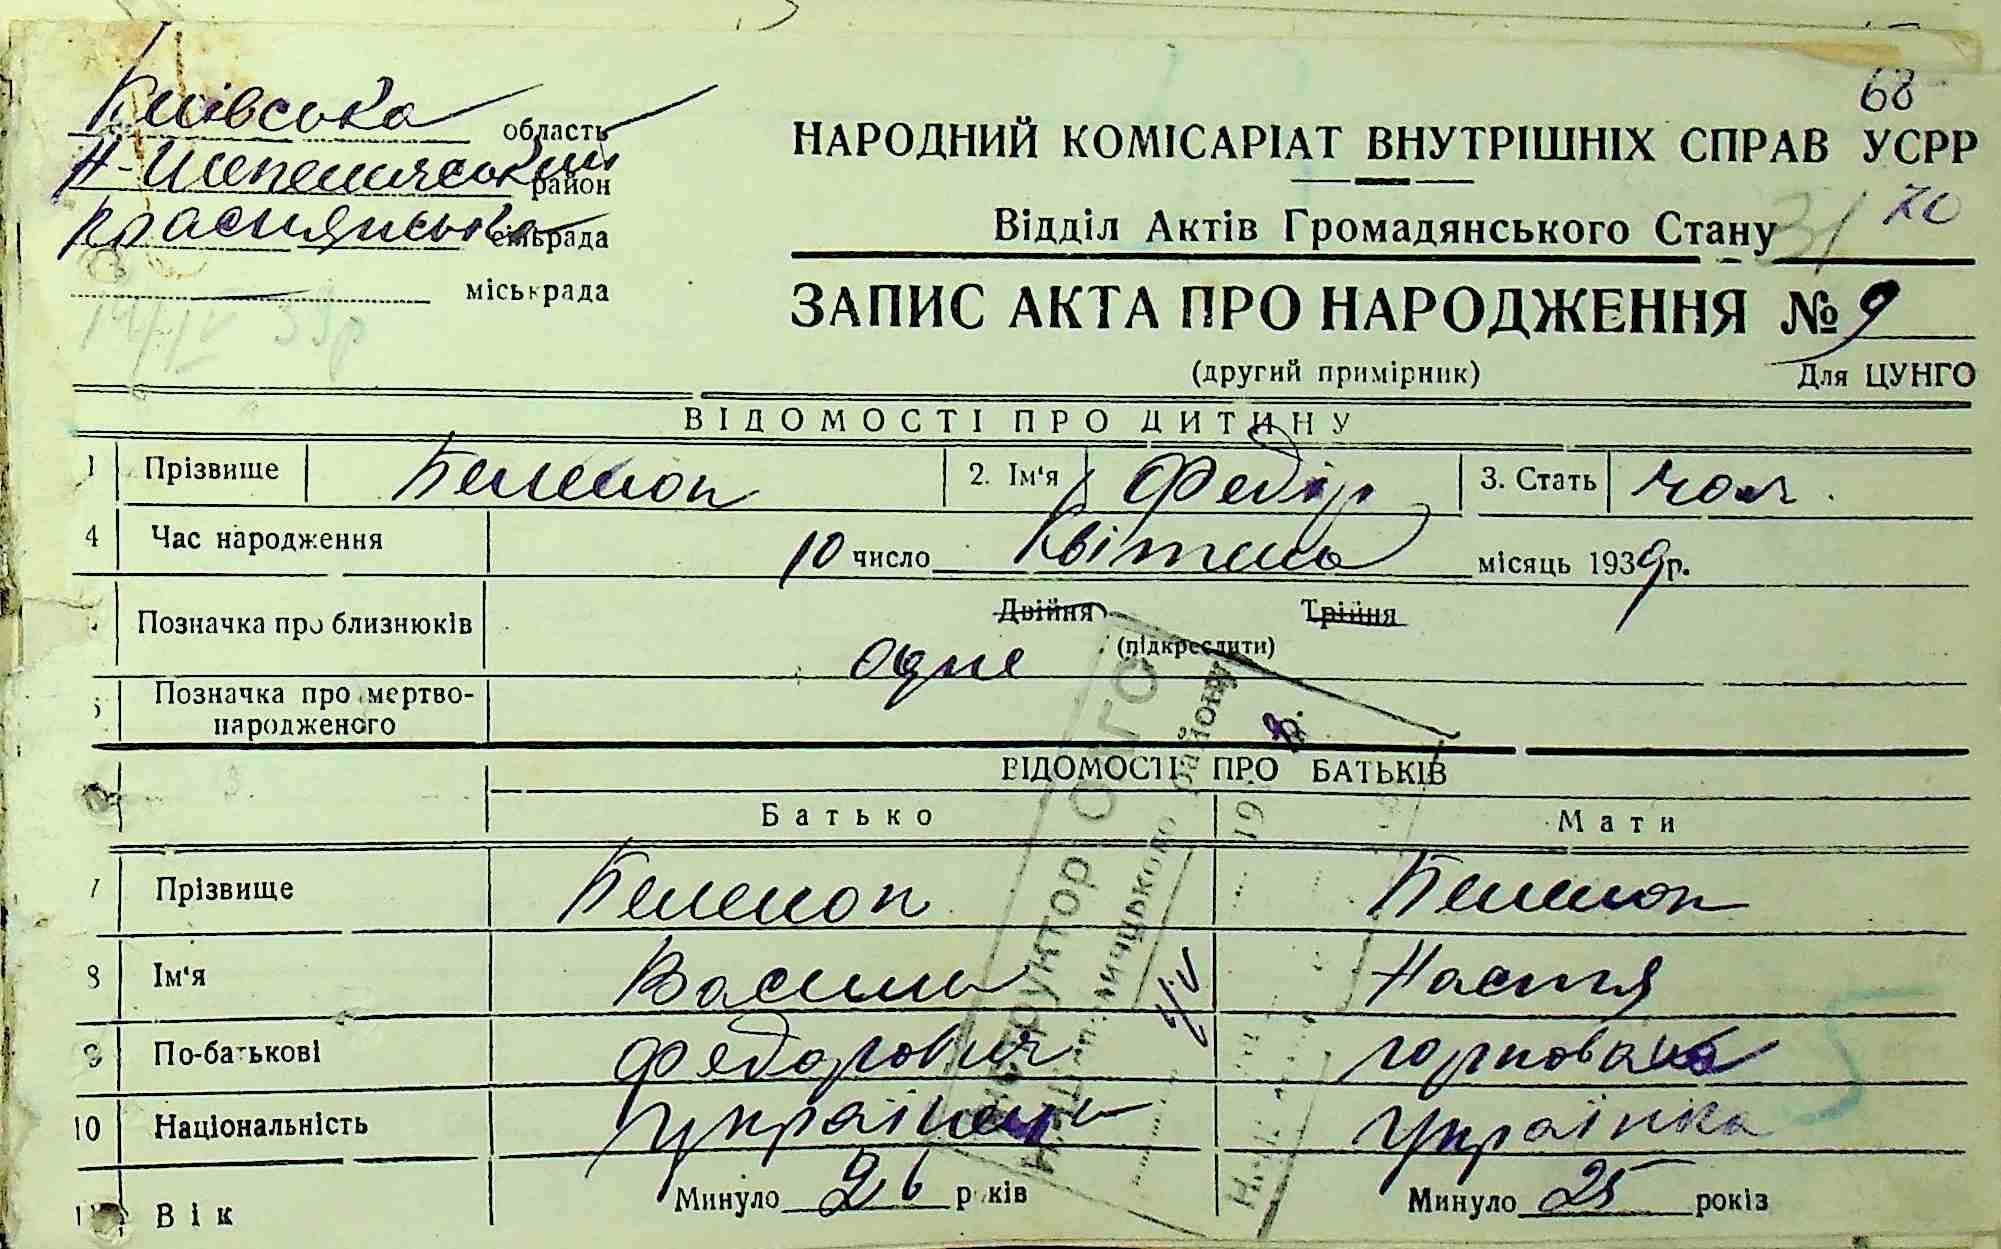 68
Київська область
Н-Шепелицький район
Краснянська сільрада
міськрада
14/IV 39р
НАРОДНИЙ КОМІСАРІАТ ВНУТРІШНІХ СПРАВ УСРР
Відділ Актів Громадянського Стану 31 70
ЗАПИС АКТА ПРО НАРОДЖЕННЯ № 9
(другий примірник) Для ЦУНГО
ВІДОМОСТІ ПРО ДИТИНУ
1 Прізвище Келемоп 2. Ім'я Федір 3. Стать чол.
4 Час народження 10 число Квітень місяць 1939 р.
Позначка про близнюків Двійня Трійня
(підкреслити)
Одне
Позначка про мертво-
народженого
ВІДОМОСТІ ПРО БАТЬКІВ
Батько Мати
7 Прізвище Келемоп Келемоп
8 Ім'я Василь Настя
9 По-батькові Федорович
10 Національність Українець Українка
11 Вік Минуло 26 років Минуло 25 років
Інструктор ОАГО
району